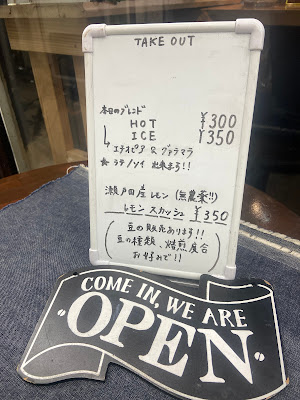 TAKE OUT
本日のブレンド
HOT ¥300
ICE ¥350
↳ エチオピア & グァテマラ
★ ラテ/ソイ 出来ます!!
瀬戸田産レモン (無農薬!!)
レモンスカッシュ ¥350
豆の販売あります!!
豆の種類、焙煎度合
お好みで!!
COME IN, WE ARE
OPEN